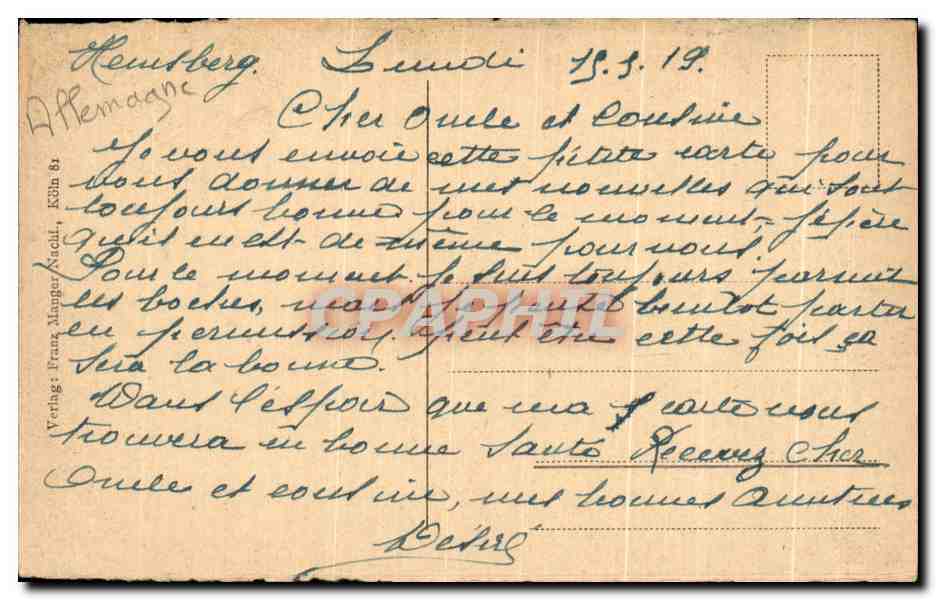 Heinsberg. Lundi 19.5.19.
Allemagne
Cher Oncle et Cousine
Je vous envoie cette petite carte pour
vous donner de mes nouvelles qui sont
toujours bonne pour le moment, j'espère
qu'il en est de même pour vous.
Pour le moment je suis toujours parmit
les boches, mais je puis bientot partir
en permission, peut être cette fois ça
sera la bonne.
Dans l'éspoir que ma carte vous
trouvera en bonne santé Recevez Cher
Oncle et cousine, mes bonnes Amitiées
Désiré
Verlag: Franz Manger Nachf., Köln 81
CPAPHIL